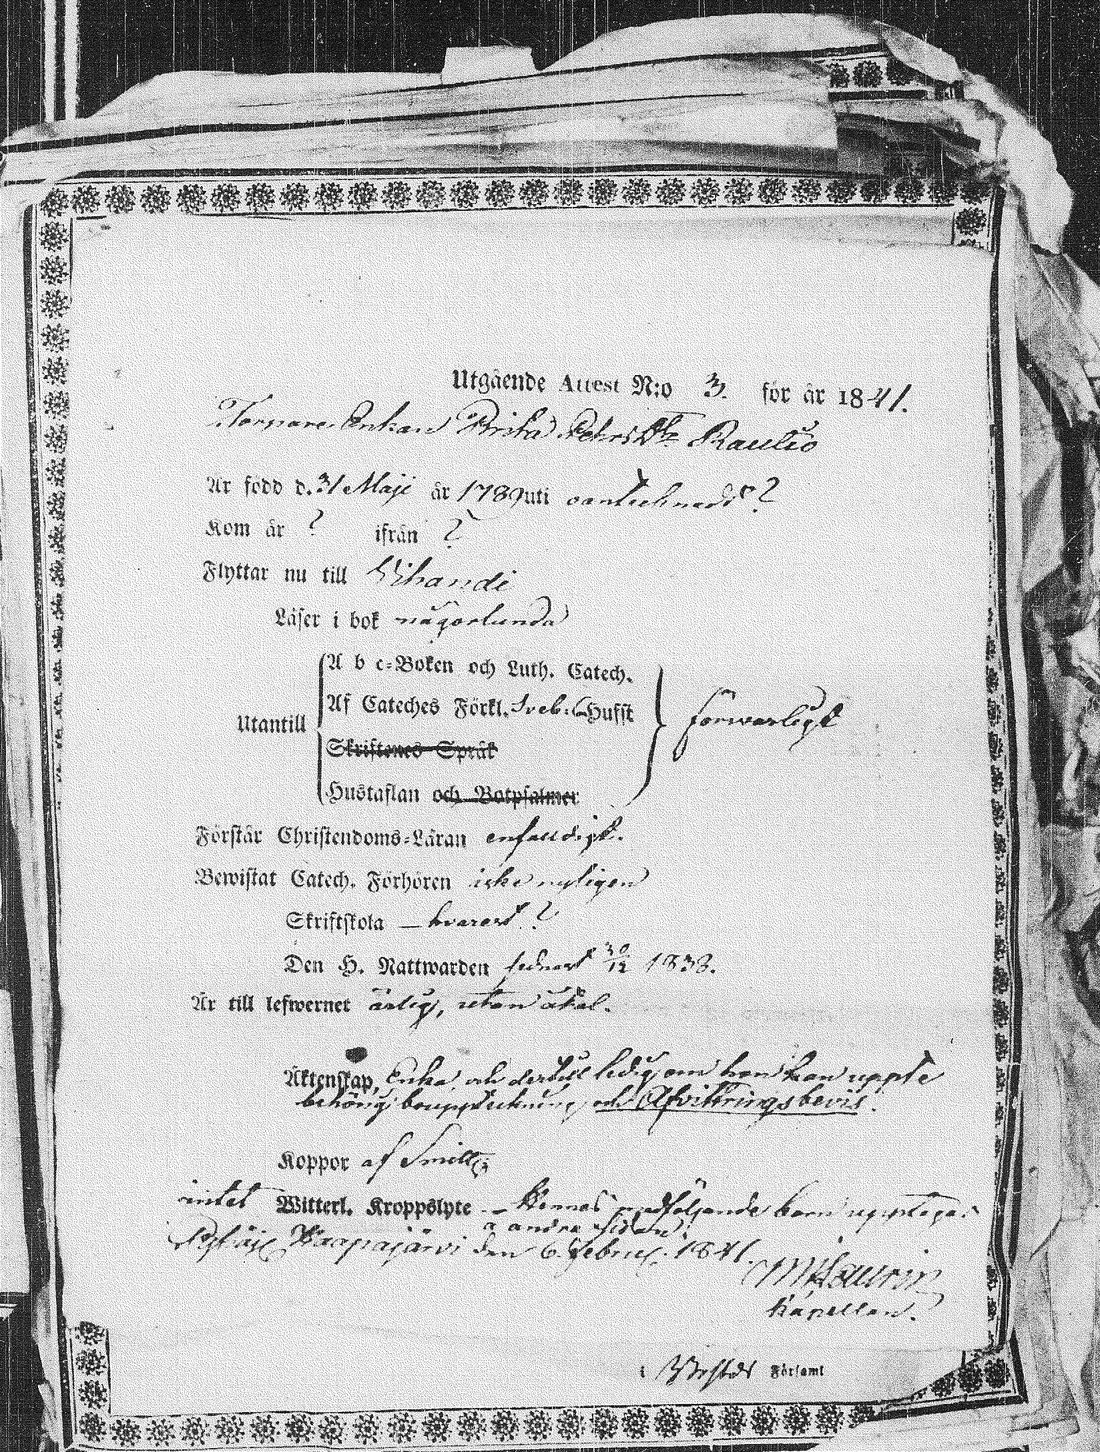 Utgående Attest N:o 3. för år 1841.
Torpare Enkan Brita Pehrs Dr Rautio
Är född d. 31 Maji år 1789 uti oantecknadt?
Kom år ? ifrån ?
Flyttar nu till Vihandi
Läser i bok någorlunda
Utantill
A b c-Boken och Luth. Catech.
Af Cateches Förkl. Sveb. Hufst
Skriftenes Språk
Hustaflan och Botpsalmer
försvarligt
Förstår Christendoms-Läran enfaldigt.
Bewistat Catech. Förhören icke nyligen
Skriftskola — hvarest?
Den H. Nattwarden sednast 30/12 1838.
Är till lefwernet ärlig, utan åtal.
Äktenskap, Enka och dertill ledig om hon kan uppte
behörig bouppteckning och Afvittringsbevis.
Koppor af Smitt;
intet Witterl. Kroppslyte — Hennes medföljande barn upptagas
å andra sidan
Haapajärvi den 6 Februr. 1841.
Kapellan.
i Församl